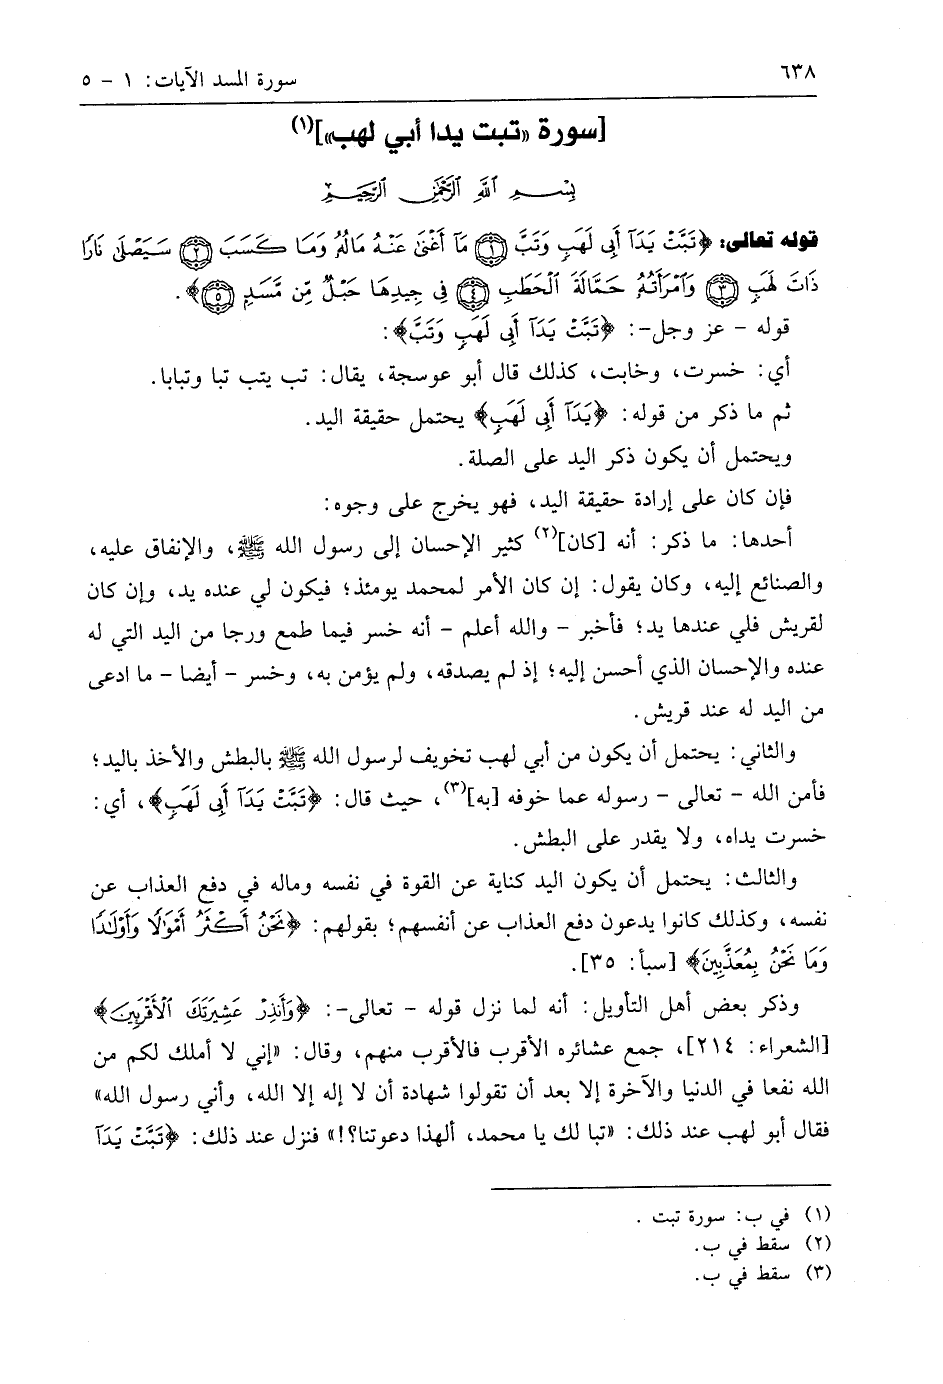 ٦٣٨
سورة المسد الآيات: ١ - ٥
[سورة «تبت يدا أبي لهب»](١)
بِسْمِ اللَّهِ الرَّحْمَٰنِ الرَّحِيمِ
قوله تعالى: ﴿تَبَّتْ يَدَآ أَبِى لَهَبٍ وَتَبَّ ﴿١﴾ مَآ أَغْنَىٰ عَنْهُ مَالُهُۥ وَمَا كَسَبَ ﴿٢﴾ سَيَصْلَىٰ نَارًا
ذَاتَ لَهَبٍ ﴿٣﴾ وَٱمْرَأَتُهُۥ حَمَّالَةَ ٱلْحَطَبِ ﴿٤﴾ فِى جِيدِهَا حَبْلٌ مِّن مَّسَدٍۭ ﴿٥﴾﴾.
قوله - عز وجل-: ﴿تَبَّتْ يَدَآ أَبِى لَهَبٍ وَتَبَّ﴾:
أي: خسرت، وخابت، كذلك قال أبو عوسجة، يقال: تب يتب تبا وتبابا.
ثم ما ذكر من قوله: ﴿يَدَآ أَبِى لَهَبٍ﴾ يحتمل حقيقة اليد.
ويحتمل أن يكون ذكر اليد على الصلة.
فإن كان على إرادة حقيقة اليد، فهو يخرج على وجوه:
أحدها: ما ذكر: أنه [كان](٢) كثير الإحسان إلى رسول الله ﷺ، والإنفاق عليه،
والصنائع إليه، وكان يقول: إن كان الأمر لمحمد يومئذ؛ فيكون لي عنده يد، وإن كان
لقريش فلي عندها يد؛ فأخبر - والله أعلم - أنه خسر فيما طمع ورجا من اليد التي له
عنده والإحسان الذي أحسن إليه؛ إذ لم يصدقه، ولم يؤمن به، وخسر - أيضا - ما ادعى
من اليد له عند قريش.
والثاني: يحتمل أن يكون من أبي لهب تخويف لرسول الله ﷺ بالبطش والأخذ باليد؛
فأمن الله - تعالى - رسوله عما خوفه [به](٣)، حيث قال: ﴿تَبَّتْ يَدَآ أَبِى لَهَبٍ﴾، أي:
خسرت يداه، ولا يقدر على البطش.
والثالث: يحتمل أن يكون اليد كناية عن القوة في نفسه وماله في دفع العذاب عن
نفسه، وكذلك كانوا يدعون دفع العذاب عن أنفسهم؛ بقولهم: ﴿نَحْنُ أَكْثَرُ أَمْوَٰلًا وَأَوْلَٰدًا
وَمَا نَحْنُ بِمُعَذَّبِينَ﴾ [سبأ: ٣٥].
وذكر بعض أهل التأويل: أنه لما نزل قوله - تعالى-: ﴿وَأَنذِرْ عَشِيرَتَكَ ٱلْأَقْرَبِينَ﴾
[الشعراء: ٢١٤]، جمع عشائره الأقرب فالأقرب منهم، وقال: «إني لا أملك لكم من
الله نفعا في الدنيا والآخرة إلا بعد أن تقولوا شهادة أن لا إله إلا الله، وأني رسول الله»
فقال أبو لهب عند ذلك: «تبا لك يا محمد، ألهذا دعوتنا؟!» فنزل عند ذلك: ﴿تَبَّتْ يَدَآ
(١) في ب: سورة تبت .
(٢) سقط في ب.
(٣) سقط في ب.